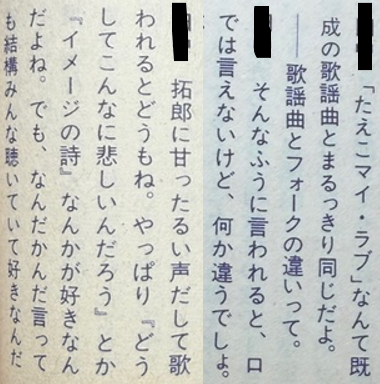 「たえこマイ・ラブ」なんて既
成の歌謡曲とまるっきり同じだよ。
――歌謡曲とフォークの違いって。
そんなふうに言われると、口
では言えないけど、何か違うでしょ。
拓郎に甘ったるい声だして歌
われるとどうもね。やっぱり『どう
してこんなに悲しいんだろう』とか
『イメージの詩』なんかが好きなん
だよね。でも、なんだかんだ言って
も結構みんな聴いていて好きなんだ